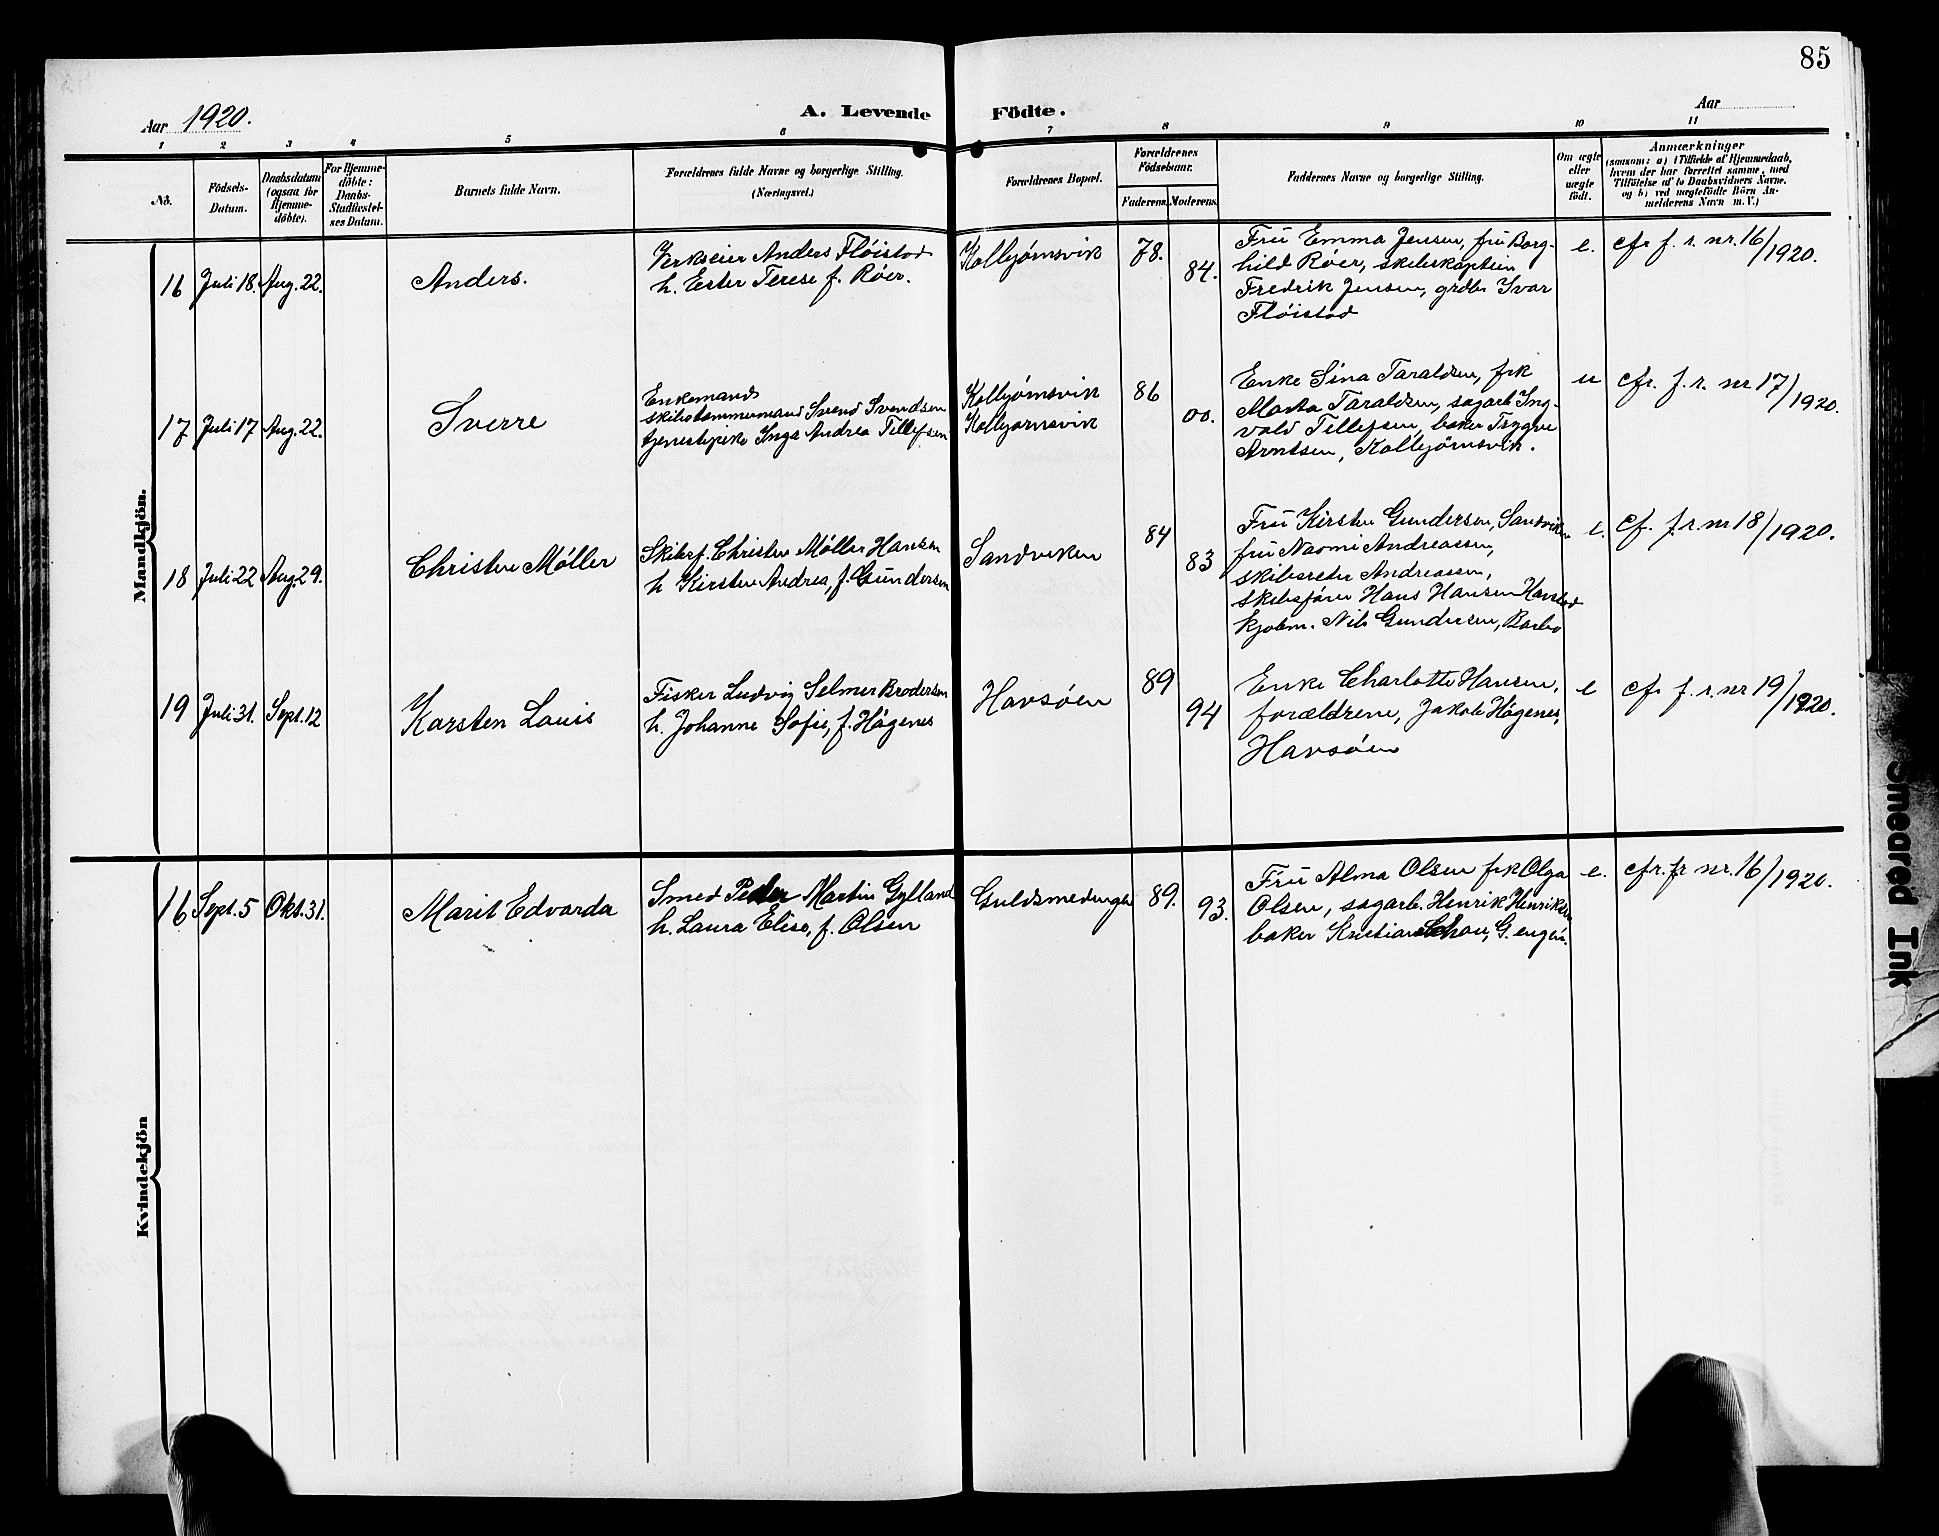 85
Aar 1920.
A. Levende Födte.
Aar
1 2 3 4 5 6 7 8 9 10 11
No.
Födsels-
Datum.
Daabsdatum
(ogsaa for
Hjemme-
döbte).
For Hjemme-
döbte:
Daabs-
Stadfæstel-
ses Datum.
Barnets fulde Navn.
Forældrenes fulde Navne og borgerlige Stilling.
(Næringsvei.)
Forældrenes Bopæl.
Forældrenes
Födselsaar.
Faderens. Moderens.
Faddernes Navne og borgerlige Stilling.
Om ægte
eller
uægte
födt.
Anmærkninger
(saasom: a) i Tilfælde af Hjemmedaab,
hvem der har forrettet samme, med
Tilföielse af to Daabsvidners Navne,
og b) ved uægtefödte Börn An-
melderens Navn m. V.)
Mandkjön.
16 Juli 18. Aug. 22. Anders.
Verkseier Anders Fløistad
h. Ester Terese f. Røer.
Kolbjørnsvik 78. 84.
Fru Emma Jensen, fru Borg-
hild Røer, skibskaptein
Fredrik Jensen, grdbr Ivar
Fløistad
e. cfr f. r. nr. 16/1920.
17 Juli 17 Aug. 22. Sverre
Enkemand
skibstømmermand Svend Svendsen
tjenestepike Inga Andrea Tellefsen
Kolbjørnsvik
Kolbjørnsvik
86 00.
Enke Sina Taraldsen, frk
Marta Taraldsen, sagarb Ing-
vald Tellefsen, baker Trygve
Arntsen, Kolbjørnsvik.
u cfr. f. r. nr 17/1920.
18 Juli 22 Aug. 29. Christen Møller
Skibsf. Christen Møller Hansen
h Kirsten Andrea, f. Gundersen
Sandviken 84 83
Fru Kirsten Gundersen, Sandviken
fru Naomi Andreassen,
skibsreder Andreassen,
skibsfører Hans Hansen
kjøbm. Nils Gundersen, Barbo
e. cf. f. r. nr 18/1920.
19 Juli 31. Sept. 12 Karsten Louis
Fisker Ludvig Selmer Brodersen
h. Johanne Sofie, f. Hågenes
Havsøen 89 94
Enke Charlotte Hansen,
forældrene, Jakob Hågenes,
Havsøen
e cfr f. r. nr 19/1920.
Kvindekjön
16 Sept. 5 Okt. 31. Marit Edvarda
Smed Peder Martin Gylland
h. Laura Elise, f. Olsen
Guldsmedengen 89. 93.
Fru Alma Olsen frk Olga
Olsen, sagarb. Henrik Henriksen
baker Kristian Schau, G. engen.
e. cfr. fr nr. 16/1920.
Smeared Ink